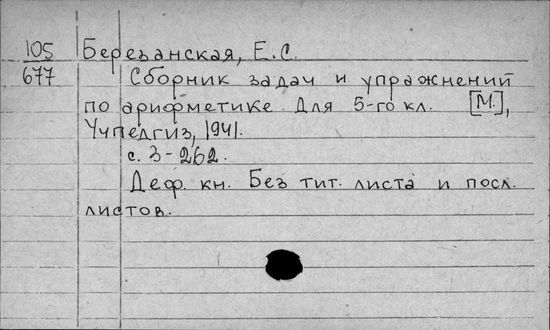 105 Березанская, Е.С.
677 Сборник задач и упражнений
по арифметике. Для 5-го кл. [М.],
Учпедгиз, 1941.
с. 3-262.
Деф. кн. Без тит. листа и посл.
листов.